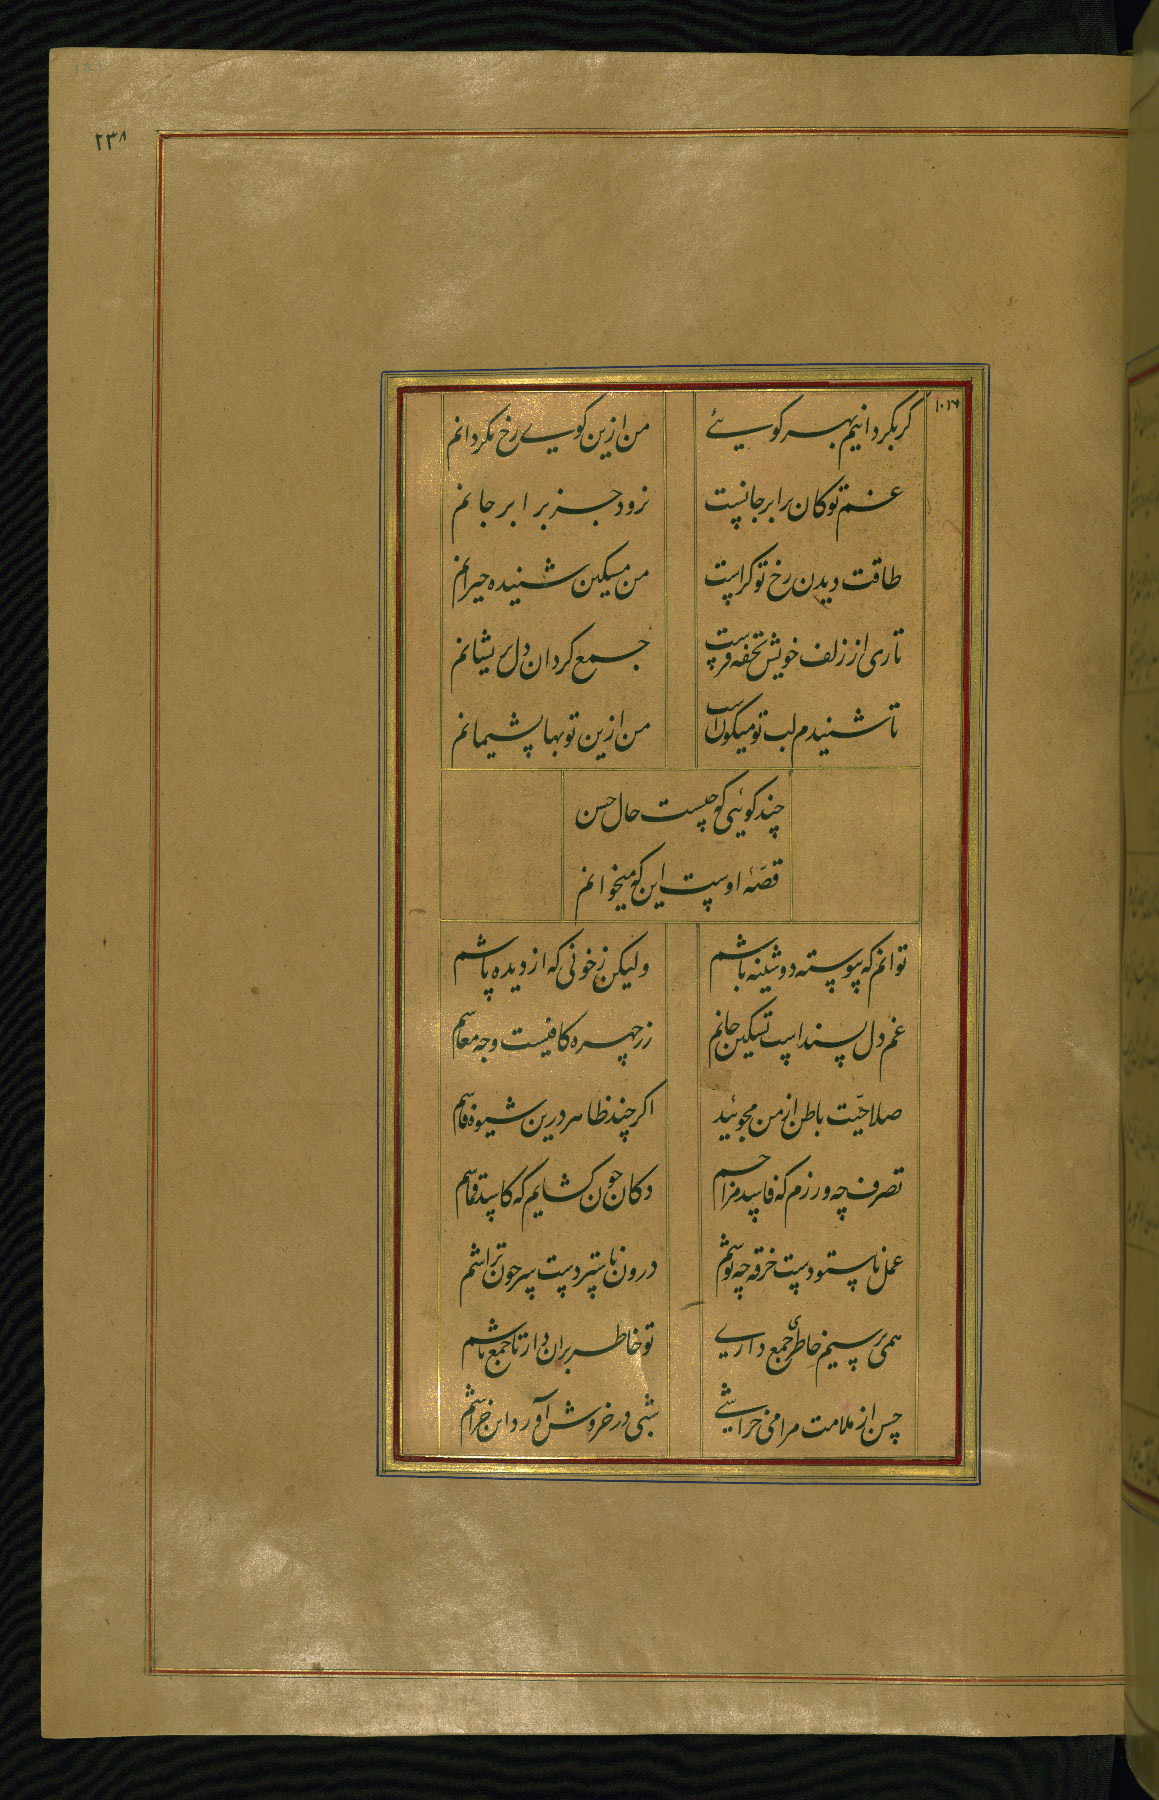 ۲۳۸
۱۰۱۶
گر بگردانیم بهر کویئے من ازین کوے رخ نگردانم
غم تو کان برابر جانست نرود جز برابر جانم
طاقت دیدن رخ تو کراست من مسکین شنیده حیرانم
تاری از زلف خویش تحفه فرست جمع گردان دل پریشانم
تا شنیدم لب تو میگونست من ازین توبها پشیمانم
چند گوئی که چیست حال حسن
قصّهٔ اوست این که میخوانم
توانم که پیوسته دوشینه باشم ولیکن ز خونی که از دیده پاشم
غم دل پسنداست تسکین جانم زر چهره کافیست وجه معاشم
صلاحیّت باطن از من مجوئید اگر چند ظاهر درین شیوه فاشم
تصرف چه ورزم که فاسد مزاجم دکان چون گشایم که کاسد قماشم
عمل ناستوده‌ست خرقه چه پوشم درون ناستردست سر چون تراشم
همی پرسیم خاطری جمع دارے تو خاطر بران دار تا جمع باشم
حسن از ملامت مرا می خراشے شبی در خروش آورد این خراشم